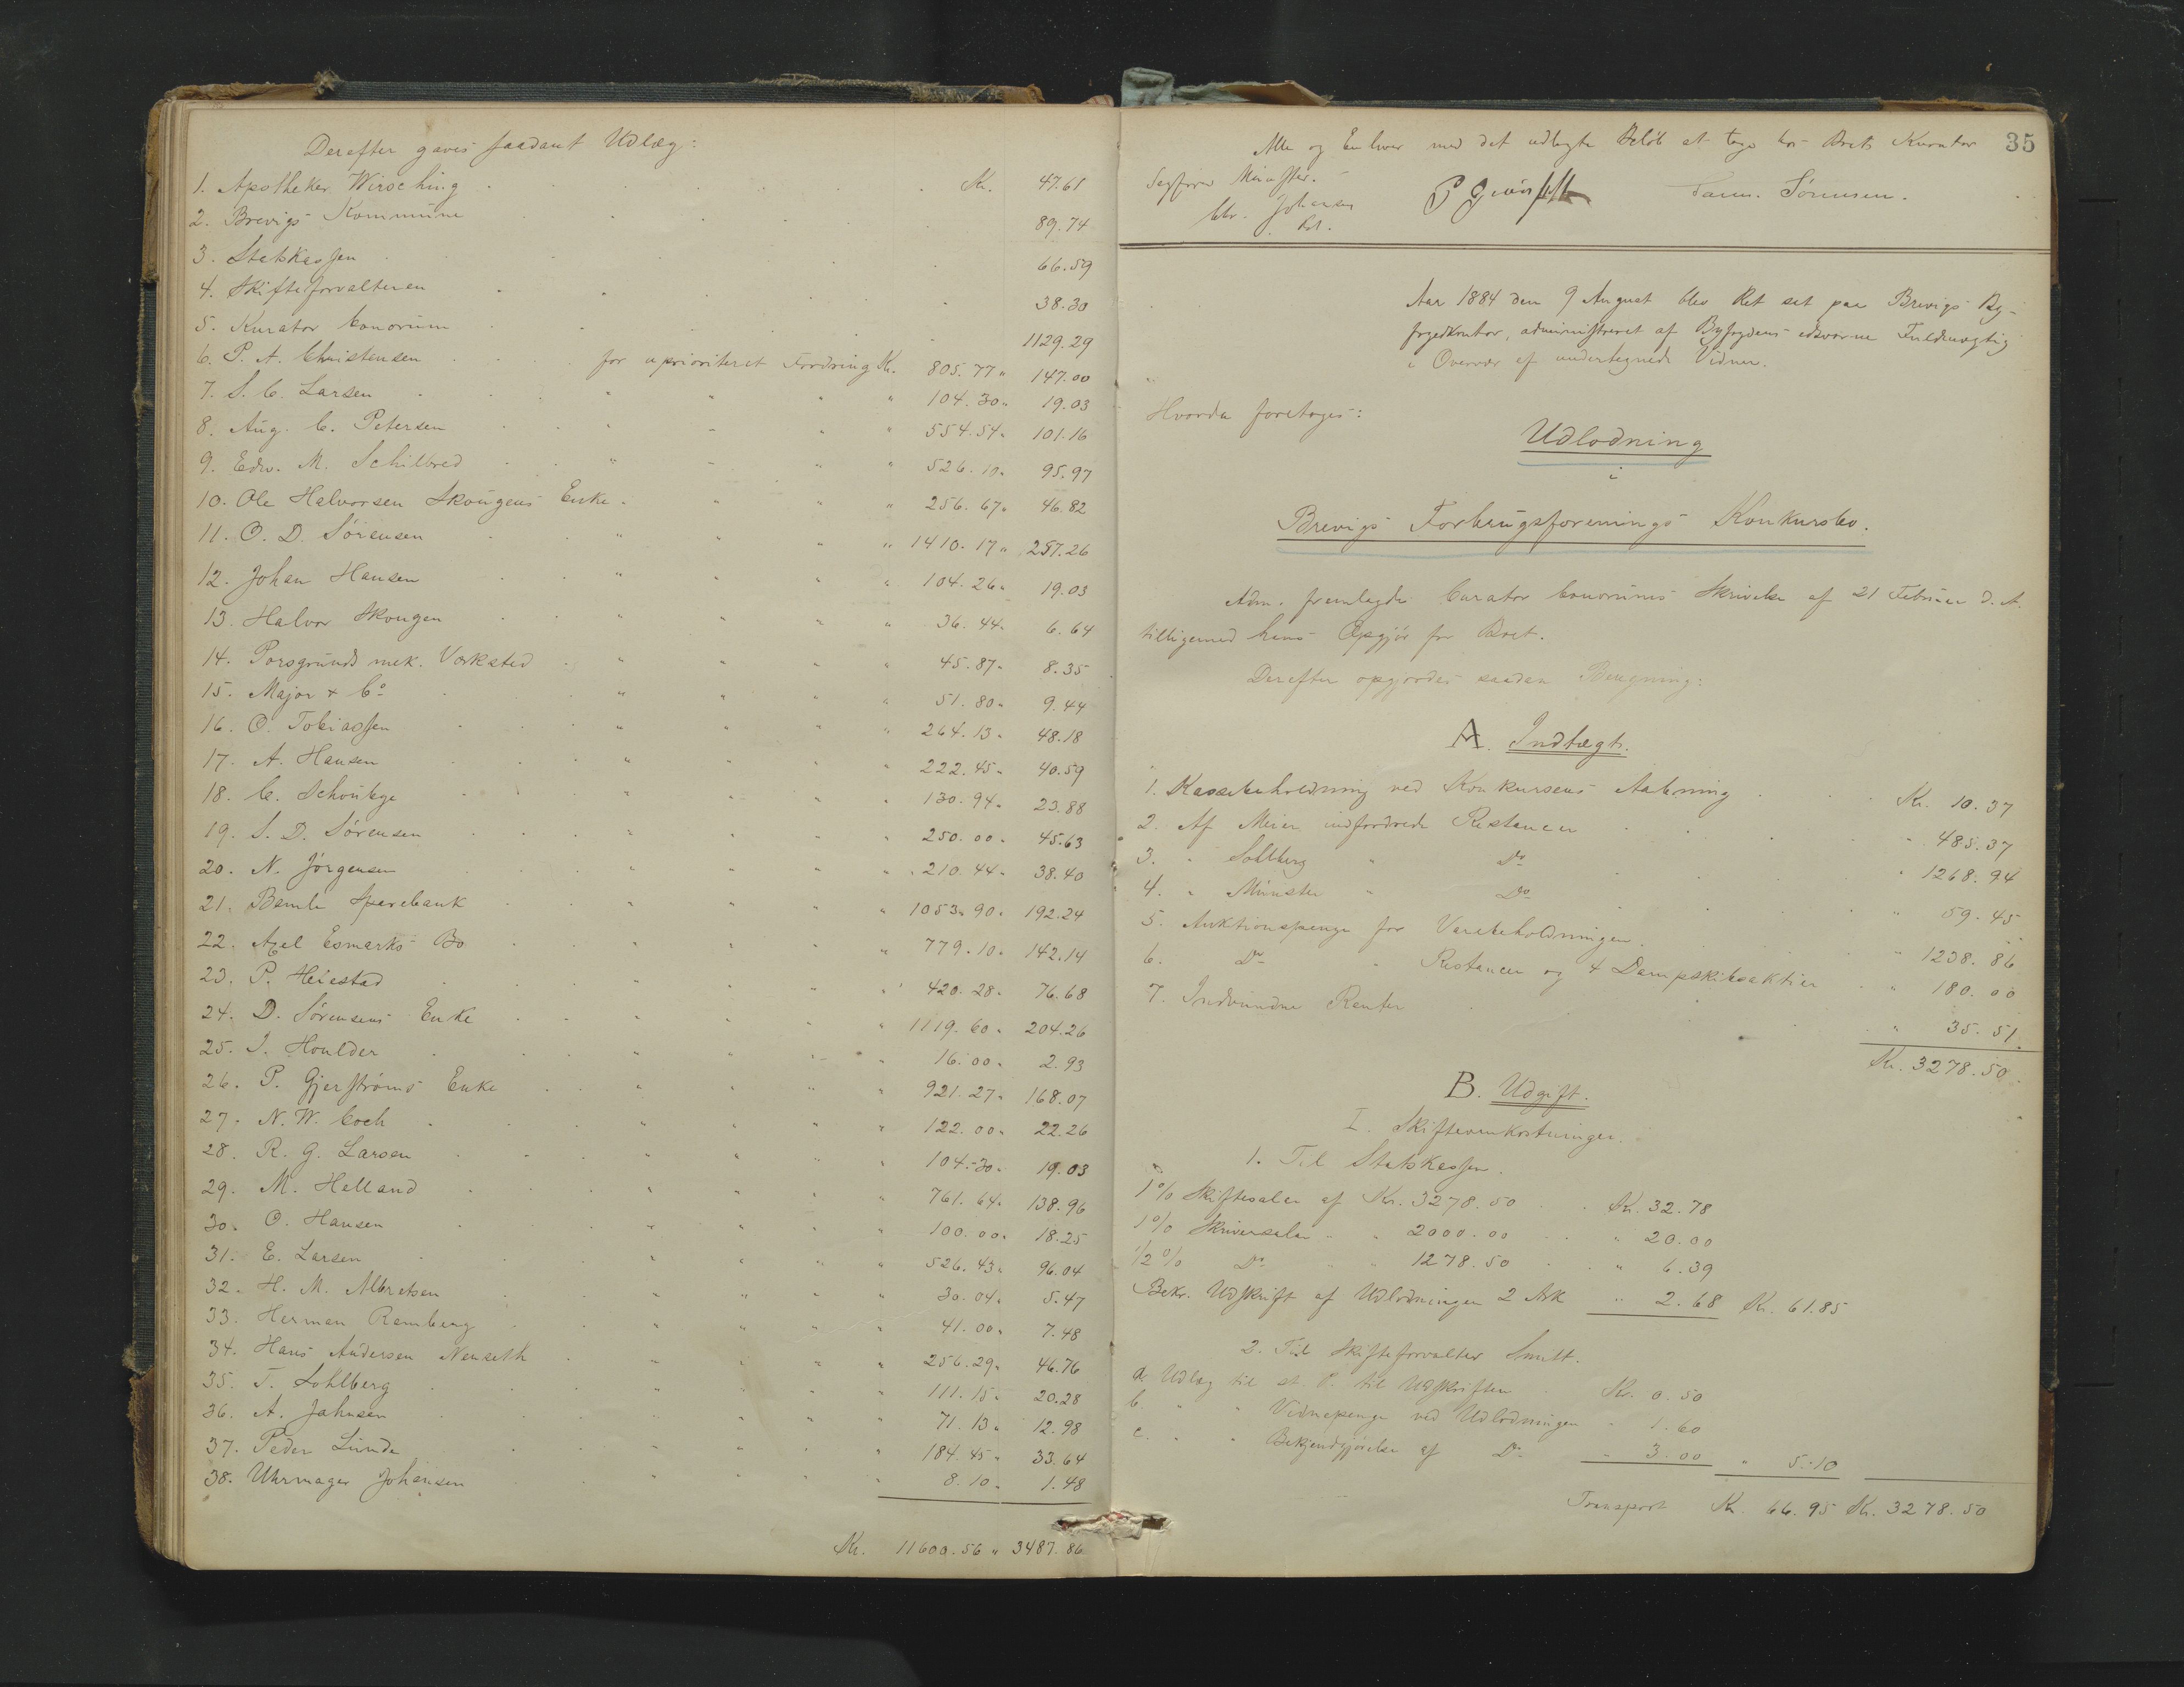 Derefter gaves saadant Udlæg:
1. Apotheker Wirsching Kr. 47.61
2. Brevigs Kommune 89.74
3. Statskassen 66.59
4. Skifteforvalteren 38.30
5. Kurator bonorum 1129.29
6. P. A. Christensen for uprioriteret Fordring Kr. 805.77 " 147.00
7. S. C. Larsen " " " " 104.30 " 19.03
8. Aug. C. Petersen " " " " 554.54 " 101.16
9. Edw. M. Schilbred " " " " 526.10 " 95.97
10. Ole Halvorsen Skougens Enke " " " 256.67 " 46.82
11. O. D. Sörensen " " " " 1410.17 " 257.26
12. Johan Hansen " " " " 104.26 " 19.03
13. Halvor Skougen " " " " 36.44 " 6.64
14. Porsgrunds mek. Værksted " " " " 45.87 " 8.35
15. Major & Co " " " " 51.80 " 9.44
16. O. Tobiassen " " " " 264.13 " 48.18
17. A. Hansen " " " " 222.45 " 40.59
18. C. Schoubye " " " " 130.94 " 23.88
19. S. D. Sörensen " " " " 250.00 " 45.63
20. N. Jörgensen " " " " 210.44 " 38.40
21. Bamle Sparebank " " " " 1053.90 " 192.24
22. Axel Esmarks Bo " " " " 779.10 " 142.14
23. P. Heiestad " " " " 420.28 " 76.68
24. D. Sörensens Enke " " " " 1119.60 " 204.26
25. J. Houlder " " " " 16.00 " 2.93
26. P. Gjerströms Enke " " " " 921.27 " 168.07
27. N. W. Coch " " " " 122.00 " 22.26
28. R. G. Larsen " " " " 104.30 " 19.03
29. M. Helland " " " " 761.64 " 138.96
30. O. Hansen " " " " 100.00 " 18.25
31. E. Larsen " " " " 526.43 " 96.04
32. H. M. Albretsen " " " " 30.04 " 5.47
33. Herman Ramberg " " " " 41.00 " 7.48
34. Hans Andersen Nenseth " " " " 256.29 " 46.76
35. T. Sohlberg " " " " 111.15 " 20.28
36. A. Jahnsen " " " " 71.13 " 12.98
37. Peder Lunde " " " " 184.45 " 33.64
38. Uhrmager Johansen " " " " 8.10 " 1.48
Kr. 11600.56 " 3487.86
35
Alle og Enhver med det udlagte Beløb at tage hos Boets Kurator
Sagfører Münster.
Chr. Johansen
Fann. Sörensen.
Aar 1884 den 9 August blev Ret sat paa Brevigs By-
fogedkontor, administreret af Byfogdens edsvorne Fuldmægtig
i Overvær af undertegnede Vidner.
Hvorda foretoges:
Udlodning
i
Brevigs Forbrugsforenings Konkursbo.
Adm. fremlagde Curator bonorums Skrivelse af 21 Februar d. A.
tilligemed hans Opgjör for Boet.
Derefter opgjordes saadan Beregning:
A. Indtægt.
1. Kassebeholdning ved Konkursens Aabning Kr. 10.37
2. Af Meier indfordrede Restancer " 485.37
3. " Sohlberg " Do " 1268.94
4. " Münster " Do " 59.45
5. Auktionspenge for Varebeholdningen " 1238.86
6. Do " Restancer og 4 Dampskibsaktier " 180.00
7. Indvundne Renter " 35.51
Kr. 3278.50
B. Udgift.
I. Skifteomkostninger.
1. Til Statskassen.
1% Skiftesalær af Kr. 3278.50 Kr. 32.78
1% Skriversalær " " 2000.00 " 20.00
1/2% Do " " 1278.50 " 6.39
Bekr. Udskrift af Udlodningen 2 Ark " 2.68 Kr. 61.85
2. Til Skifteforvalter Smitt.
a. Udlæg til st. P. til Udskriften Kr. 0.50
b. " " Vidnepenge ved Udlodningen " 1.60
c. " " Bekjendtgjörelse af Do " 3.00 " 5.10
Transport Kr. 66.95 Kr. 3278.50